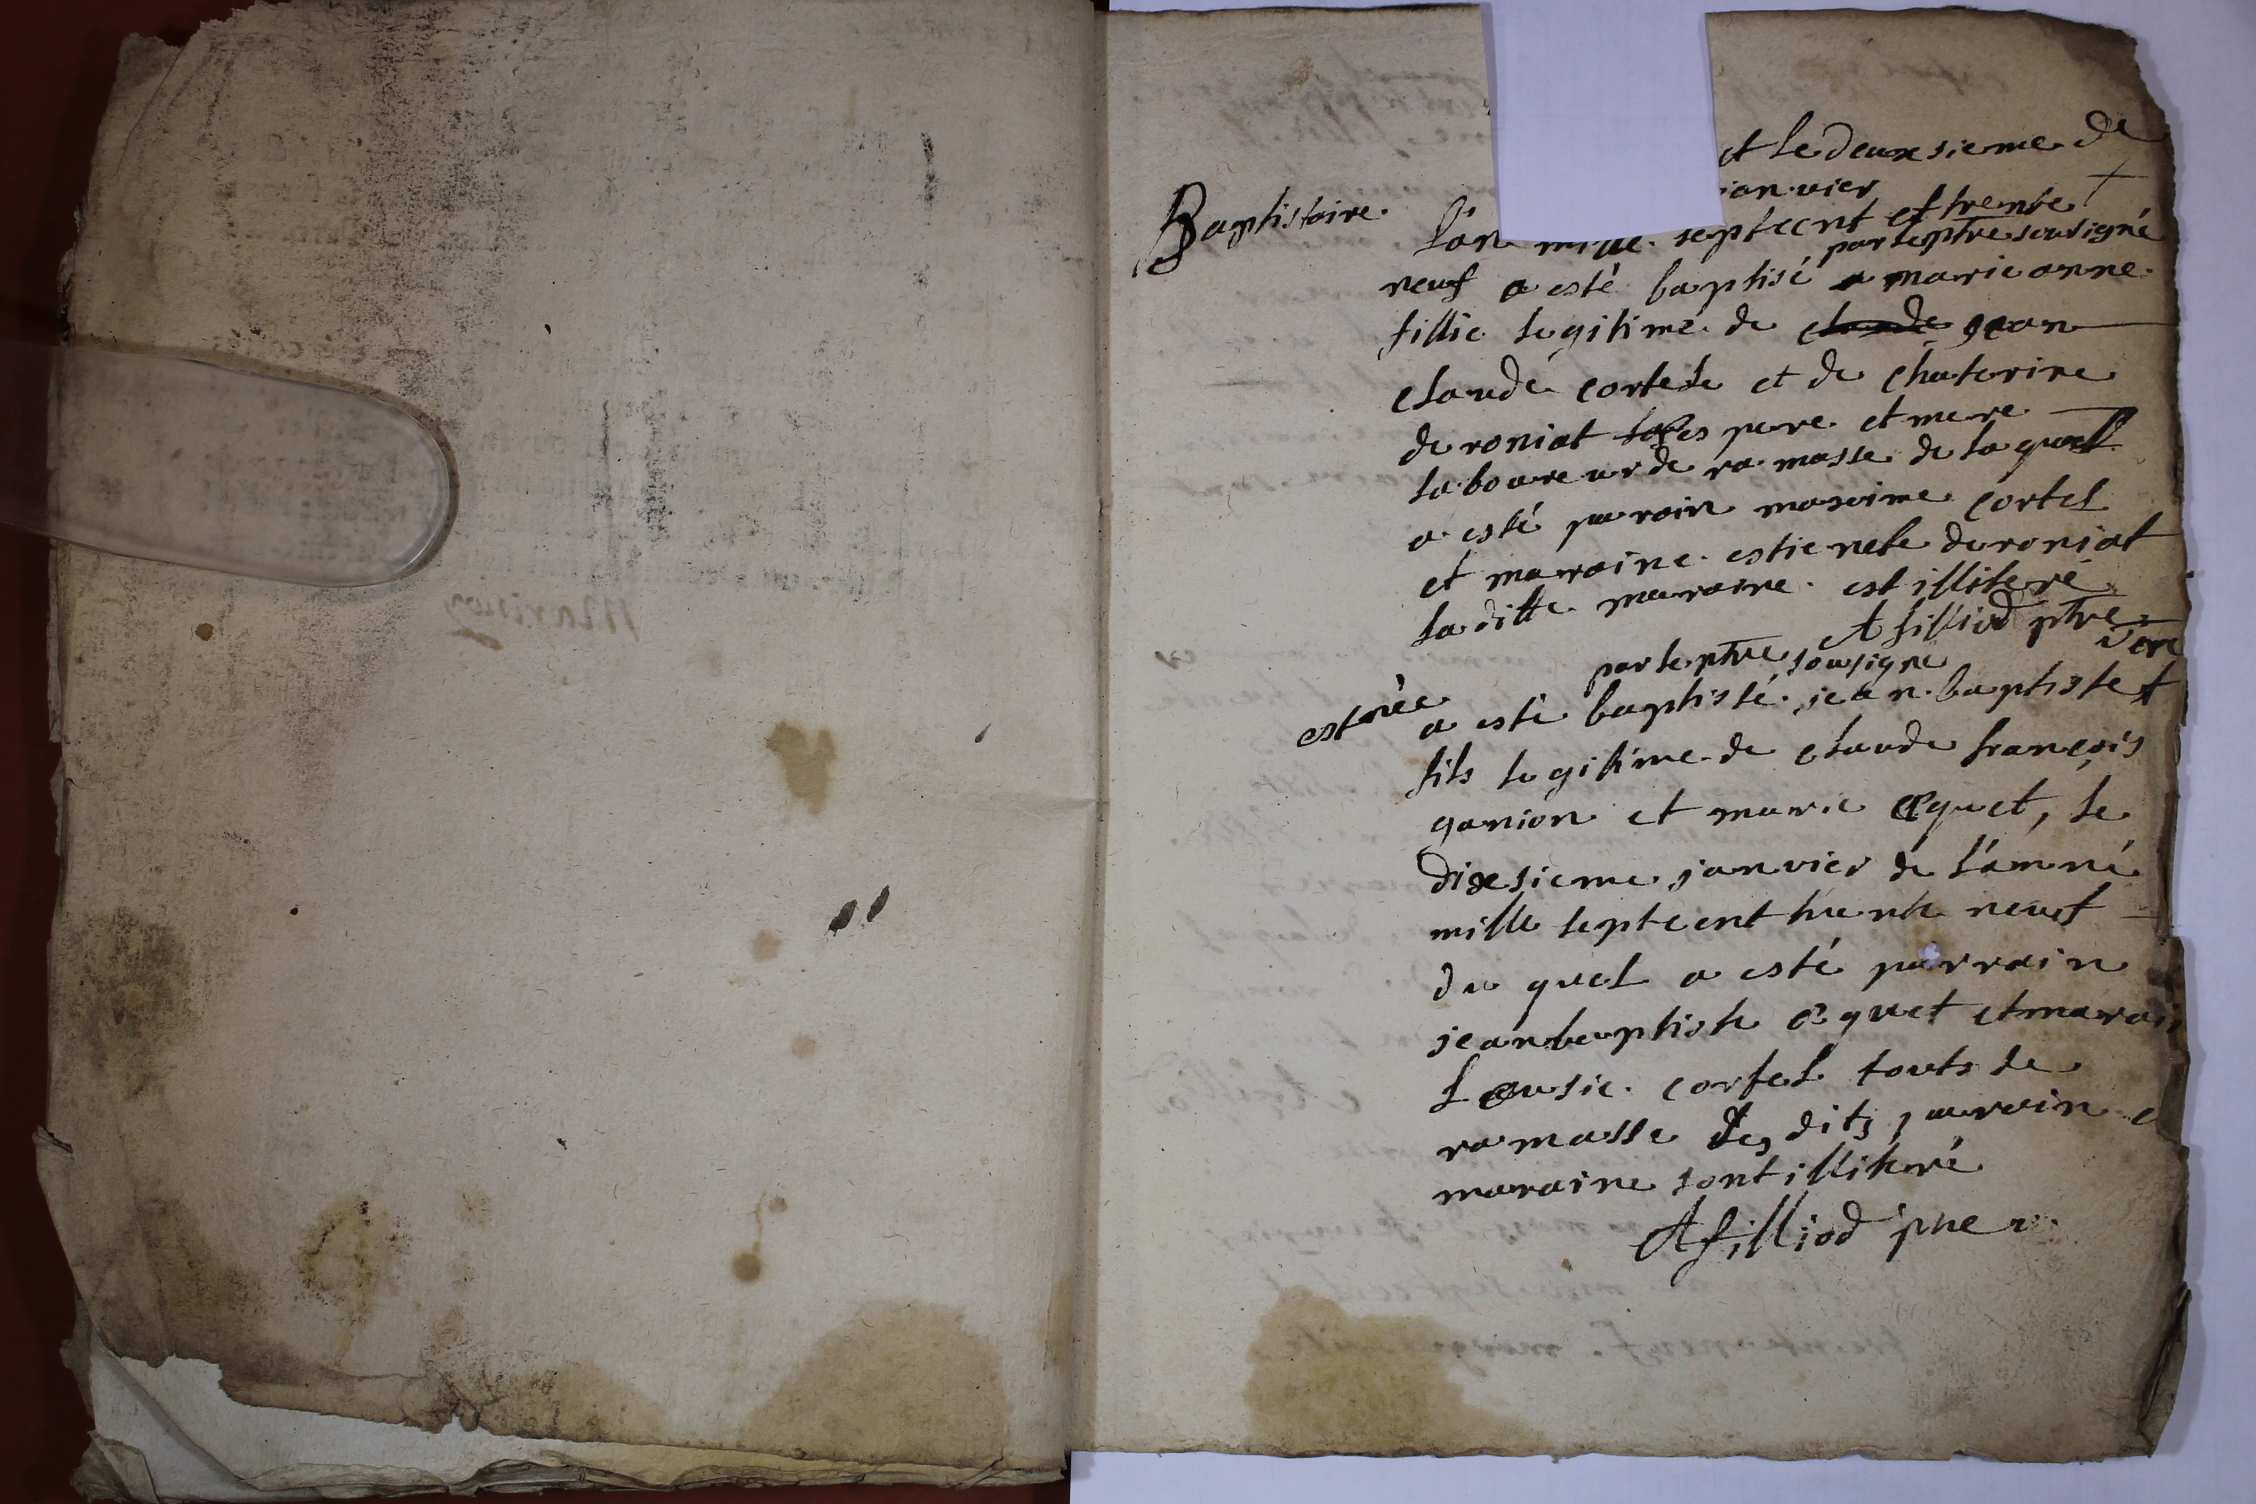 et le deuxsieme de
ianvier
Baptistaire. L'an mille septcent et trente
par le ptre sousigné
neuf a esté baptisé marie anne
fillie legitime de claude jean
claude cortel et de chaterine
deroniat les pere et mere
laboureur de ramasse de laquell
a esté parain maxime cortel
et maraine estienete deroniat
la ditte maraine est illiteré
A filliod ptre
vere
par le ptre sousigne
est née a esté baptisté jean baptiste
fils legitime de claude françois
ganion et marie equet, le
dixesieme janvier de l'anné
mille septcent trente neuf
du quel a esté parrain
jean baptiste equet et marain
Lousie cortel touts de
ramasse les dits parain e
maraine sont illiteré
A filliod ptre